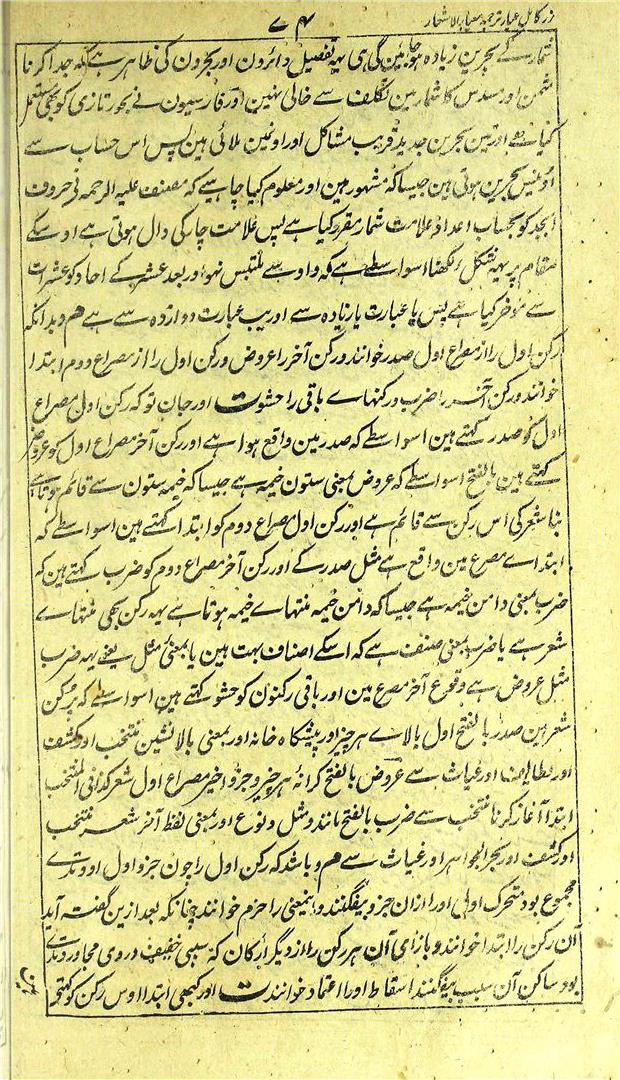 زر کامل عیار ترجمہ معیار الاشعار
۷۴
شمار کے بحرین زیادہ ہو جائین گی ہی یہ تفصیل دائرون اور بحرون کی ظاہر ہے کہ جدا کرنا
مثمن اور مسدس کا شمار مین تکلف سے خالی نہین اور فارسیون نے بحور تازی کو بھی مستعمل
کیا ہے اور تین بحرین جدید قریب مشاکل اور اونمین ملائی ہین پس اس حساب سے
اونیس بحرین ہوتی ہین جیسا کہ مشہور ہین اور معلوم کیا چاہیے کہ مصنف علیہ الرحمہ نی حروف
ابجد کو بحساب اعداد علامت شمار مقرر کیا ہے پس علامت چار کی دال ہوتی ہے اوسکے
مقام پر یہ شکل لکھنا اسواسطے ہے کہ واو سے ملتبس نہو اور بعد عشر کے احاد کو عشرات
سے موخر کیا ہے پس یا عبارت یازدہ سے اور یب عبارت دوازدہ سے ہے ھم و بدانکہ
رکن اول را از مصراع اول صدر خوانند و رکن آخر را عروض و رکن اول را از مصراع دوم ابتدا
خوانند و رکن آخر را ضرب و رکنہاے باقی را حشو ت اور جان تو کہ رکن اول مصراع
اول کو صدر کہتے ہین اسواسطے کہ صدر مین واقع ہوا ہے اور رکن آخر مصراع اول کو عروض
کہتے ہین بالفتح اسواسطے کہ عروض بمعنی ستون خیمہ ہے جیسا کہ خیمہ ستون سے قائم ہوتا ہے
بنا شعر کی اس رکن سے قائم ہے اور رکن اول مصراع دوم کو ابتدا کہتے ہین اسواسطے کہ
ابتداے مصرع مین واقع ہے مثل صدر کے اور رکن آخر مصراع دوم کو ضرب کہتے ہین کہ
ضرب بمعنی دامن خیمہ ہے جیسا کہ دامن خیمہ منتہاے خیمہ ہوتا ہے یہ رکن بھی منتہاے
شعر ہے یا ضرب بمعنی صنف ہے کہ اسکے اصناف بہت ہین یا بمعنی مثل یعنے یہ ضرب
مثل عروض ہے وقوع آخر مصرع مین اور باقی رکنون کو حشو کہتے ہین اسواسطے کہ پرکن
شعر ہین صدر بالفتح اول بالاے ہر چیز اور پیشگاہ خانہ اور بمعنی بالانشین منتخب اور کشف
اور لطائف اور غیاث سے عروض بالفتح کرانہ ہر چیز و جزو اخیر مصراع اول شعر کذا فی المنتخب
ابتدا آغاز کرنا منتخب سے ضرب بالفتح مانند و مثل و نوع اور بمعنی لفظ آخر شعر منتخب
اور کشف اور بحر الجواہر اور غیاث سے ھم و باشد کہ رکن اول را چون جزو اول او وتدے
مجموع بود متحرک اولی اور ازان جزو بیفگنند و اینمعنی را خرم خوانند چنانکہ بعد ازین گفتہ آید
آن رکن را ابتدا خوانند و بازاے آن ہر رکن را از دیگر ارکان کہ سببی خفیف در وی مجاور وتدے
بود و ساکن آن سبب بیفگنند اسقاط اورا اعتماد خوانند ت اور کبھی ابتدا اوس رکن کو کہتے